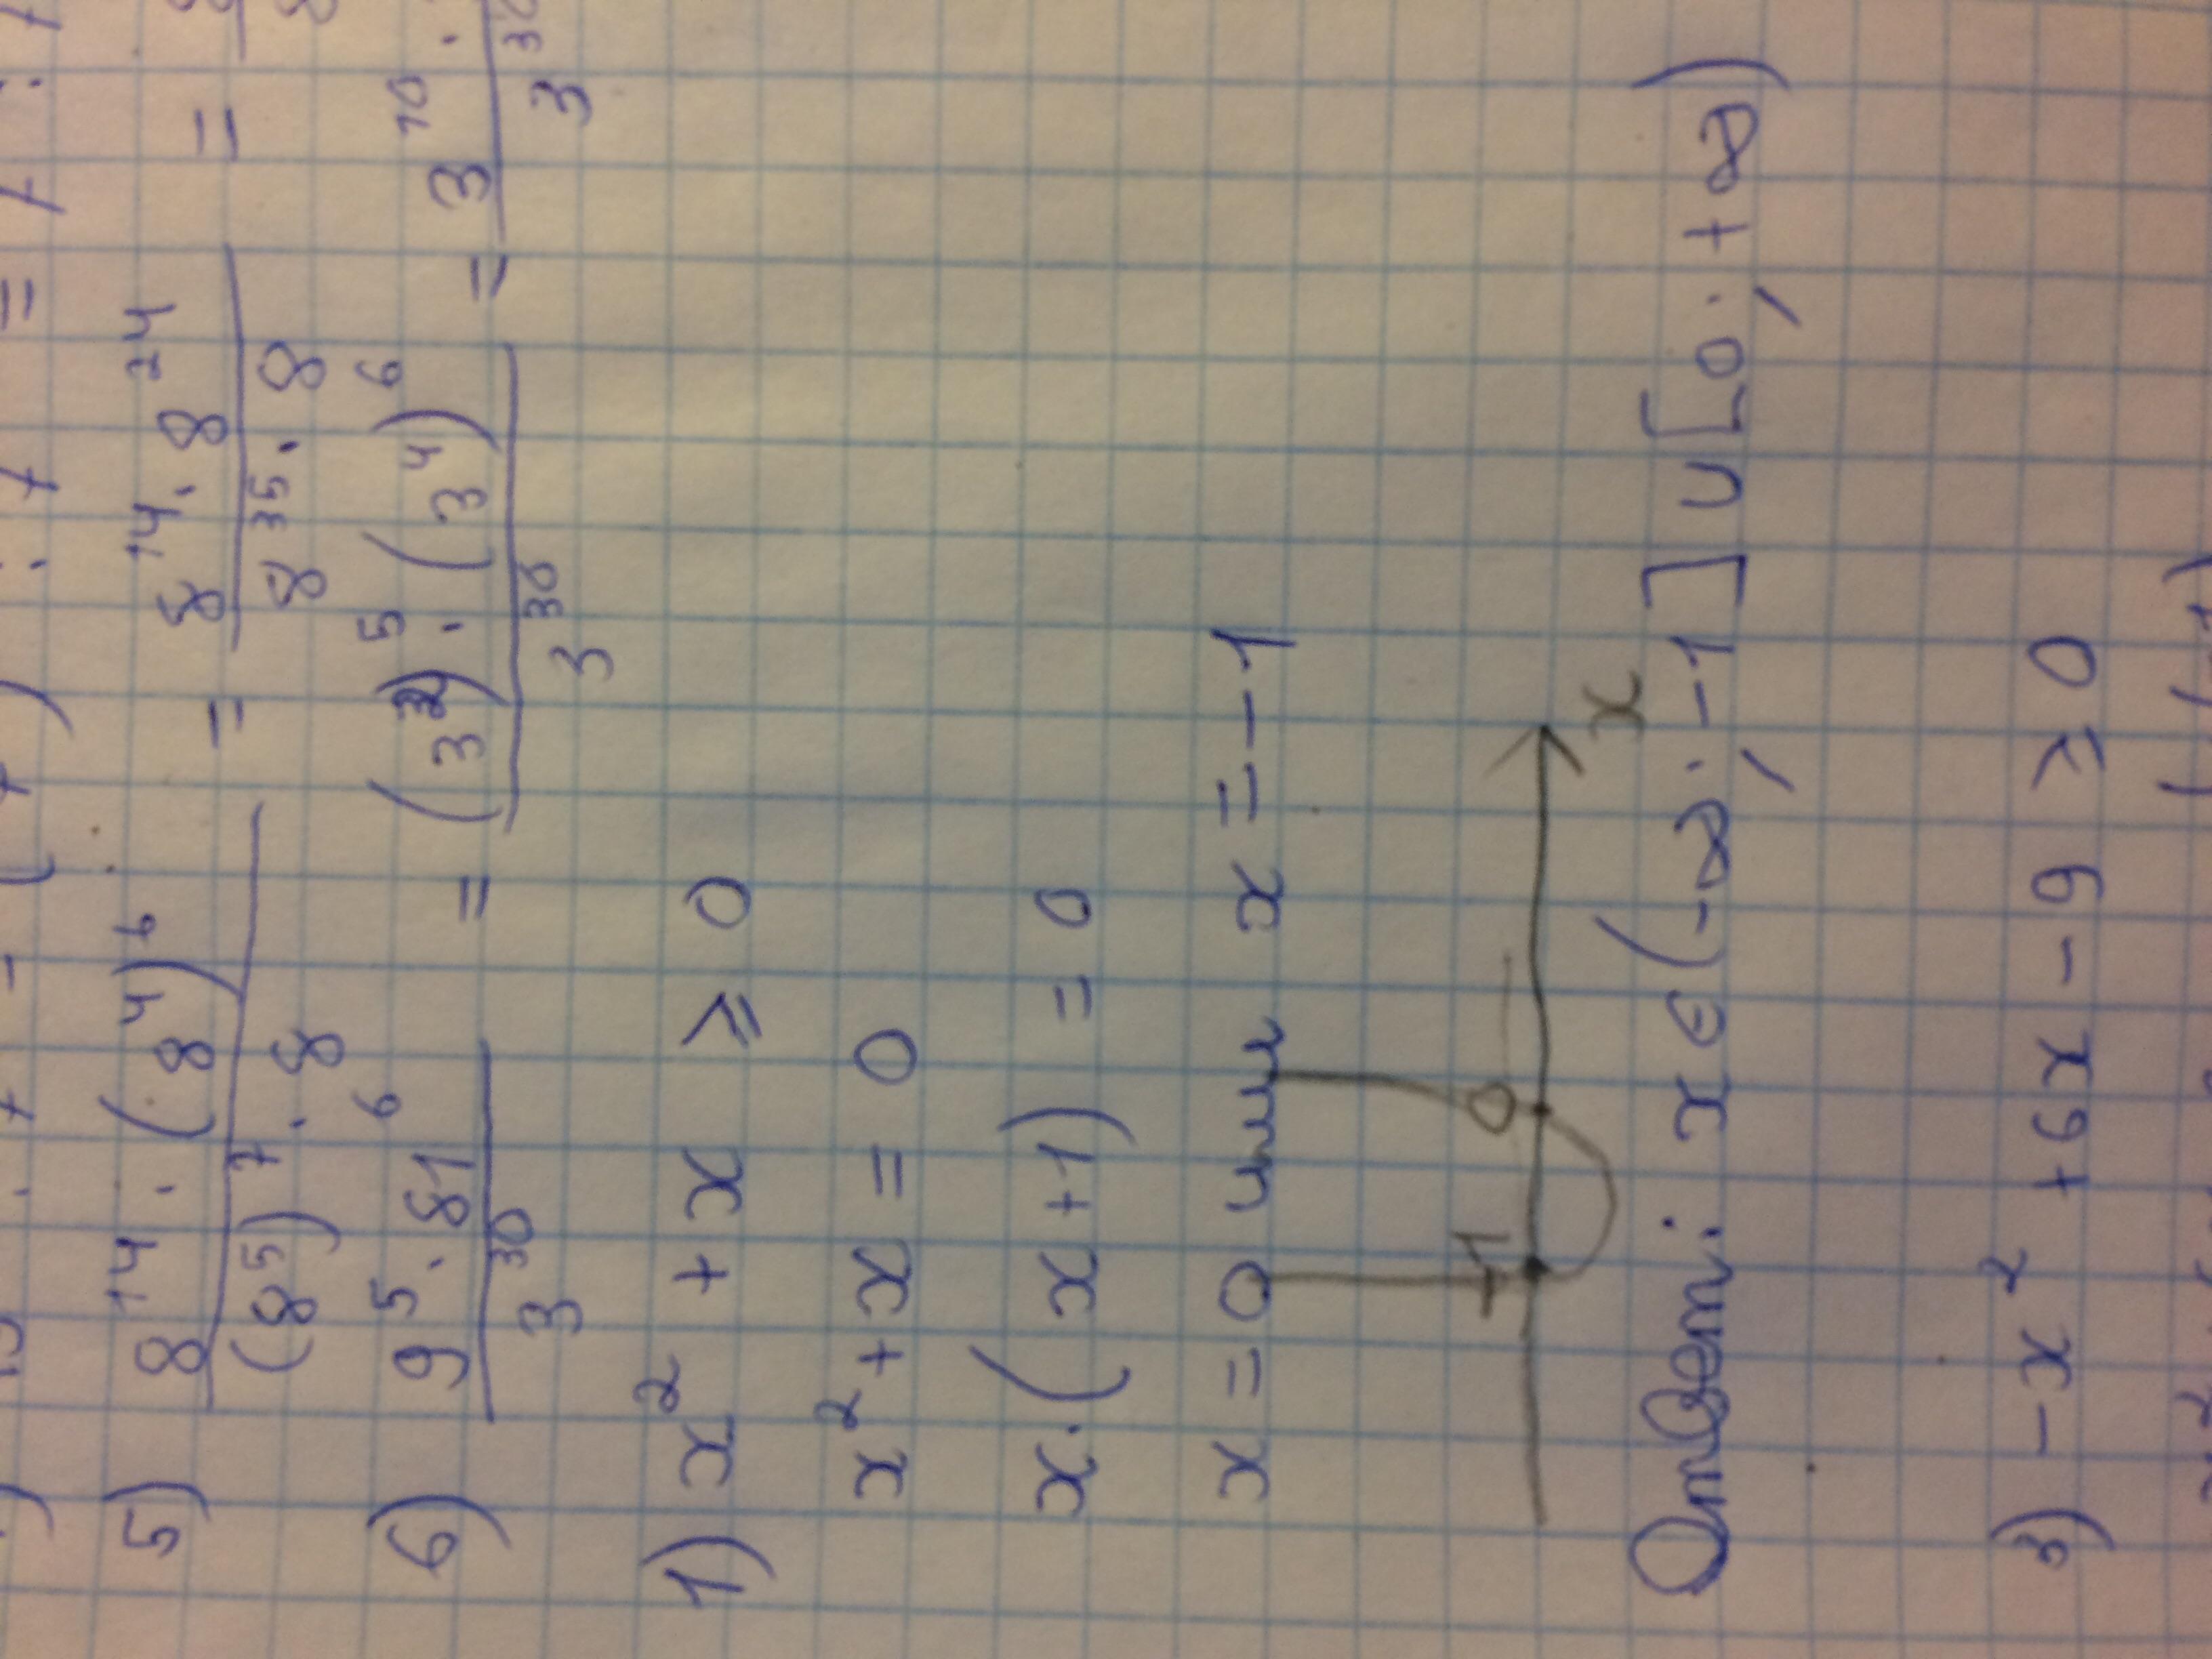 5) 8¹⁴ · (8⁴)⁶ / (8⁵)⁷ · 8 = 8¹⁴ · 8²⁴ / 8³⁵ · 8 =
6) 9⁵ · 81⁶ / 3³⁰ = (3²)⁵ · (3⁴)⁶ / 3³⁰ = 3¹⁰ · / 3³⁰
1) x² + x ⩾ 0
x² + x = 0
x · (x + 1) = 0
x = 0 или x = -1
-1 0 x
Ответ: x ∈ (-∞; -1] ∪ [0; +∞)
3) -x² + 6x - 9 ⩾ 0